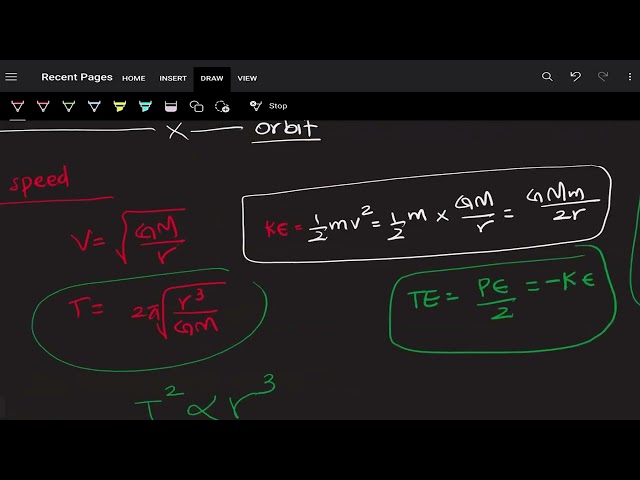 Recent Pages HOME INSERT DRAW VIEW
Stop
x orbit
speed
V = √(GM/r)
KE = 1/2 mv² = 1/2 m × GM/r = GMm/2r
T = 2π√(r³/GM)
TE = PE/2 = -KE
T² ∝ r³